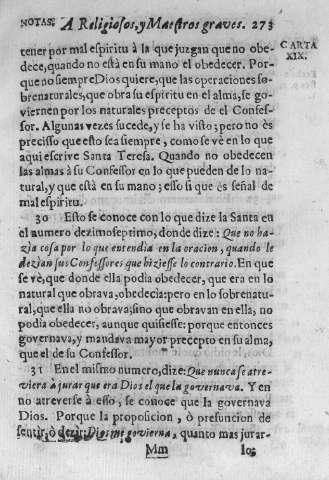 NOTAS. A Religiosos, y Maestros graves. 273
CARTA
XIX.
tener por mal espiritu à la que juzgan que no obe-
dece, quando no està en su mano el obedecer. Por-
que no siempre Dios quiere, que las operaciones so-
brenaturales, que obra su espiritu en el alma, se go-
viernen por los naturales preceptos de el Confes-
sor. Algunas vezes sucede, y se ha visto; pero no es
precisso que esto sea siempre, como se vè en lo que
aqui escrive Santa Teresa. Quando no obedecen
las almas à su Confessor en lo que pueden de lo na-
tural, y que està en su mano; esso si que es señal de
mal espiritu.
30 Esto se conoce con lo que dize la Santa en
el numero dezimoseptimo, donde dize: Que no ha-
zia cosa por lo que entendia en la oracion, quando le
dezian sus Confessores que hiziesse lo contrario. En que
se vè, que donde ella podia obedecer, que era en lo
natural que obrava, obedecia; pero en lo sobrenatu-
ral, que ella no obrava; sino que obravan en ella, no
podia obedecer, aunque quisiesse: porque entonces
governava, y mandava mayor precepto en su alma,
que el de su Confessor.
31 En el mismo numero, dize: Que nunca se atre-
viera à jurar que era Dios el que la governava. Y en
no atreverse à esso, se conoce que la governava
Dios. Porque la proposicion, ò presuncion de
sentir, ò dezir: Dios me govierna, quanto mas jurar-
Mm los